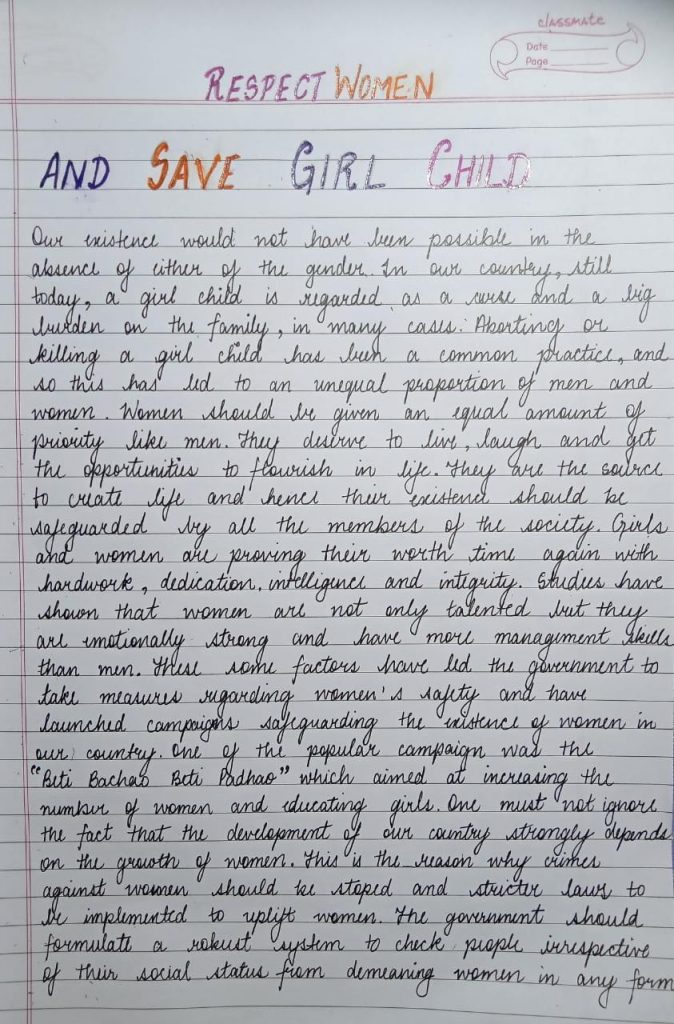 classmate
Date
Page
RESPECT WOMEN
AND SAVE GIRL CHILD
Our existence would not have been possible in the
absence of either of the gender. In our country, still
today, a girl child is regarded as a curse and a big
burden on the family, in many cases. Aborting or
killing a girl child has been a common practice, and
so this has led to an unequal proportion of men and
women. Women should be given an equal amount of
priority like men. They deserve to live, laugh and get
the opportunities to flourish in life. They are the source
to create life and hence their existence should be
safeguarded by all the members of the society. Girls
and women are proving their worth time again with
hardwork, dedication, intelligence and integrity. Studies have
shown that women are not only talented but they
are emotionally strong and have more management skills
than men. These some factors have led the government to
take measures regarding women's safety and have
launched campaigns safeguarding the existence of women in
our country. One of the popular campaign was the
"Beti Bachao Beti Padhao" which aimed at increasing the
number of women and educating girls. One must not ignore
the fact that the development of our country strongly depends
on the growth of women. This is the reason why crimes
against women should be stoped and stricter laws to
be implemented to uplift women. The government should
formulate a robust system to check people irrispective
of their social status from demeaning women in any form